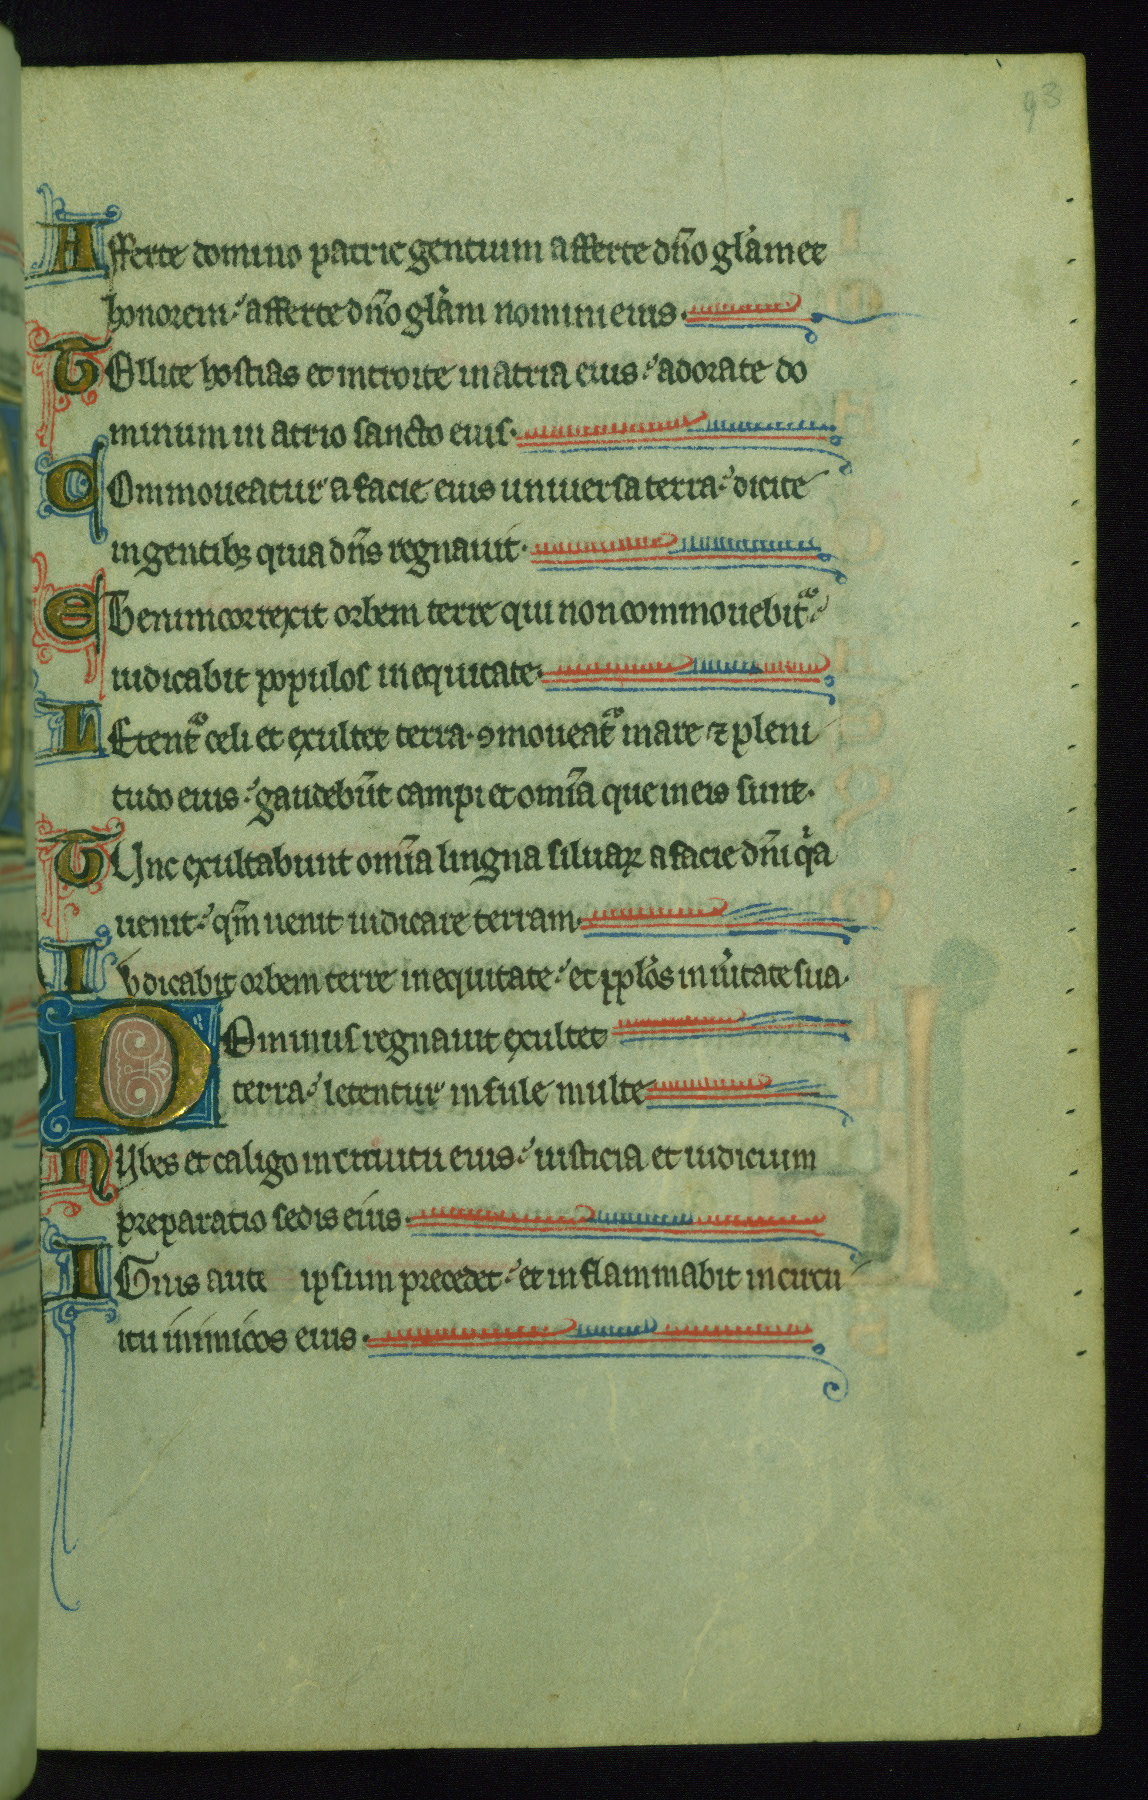 93
Afferte domino patrie gentium afferte dn̄o gl̄am et
honorem: afferte dn̄o gl̄am nomini eius.
Tollite hostias et introite in atria eius: adorate do
minum in atrio sancto eius.
Commoueatur a facie eius uniuersa terra: dicite
in gentibꝫ quia dn̄s regnauit.
Ethenim correxit orbem terre qui non commouebit᷑:
iudicabit populos in equitate.
Letent᷑ celi et exultet terra. ꝯmoueat᷑ mare ⁊ pleni
tudo eius: gaudebūt campi et om̄ia que in eis sunt.
Tunc exultabunt om̄ia lingna siluaꝝ a facie dn̄i qͥa
uenit: qm̄ uenit iudicare terram.
Iudicabit orbem terre in equitate: et ppl̄os in ūitate sua.
Dominus regnauit exultet
terra: letentur insule multe
Nubes et caligo in circuitu eius: iusticia et iudicium
preparatio sedis eius.
Ignis ante ipsum precedet: et inflammabit in circu
itu inimicos eius.